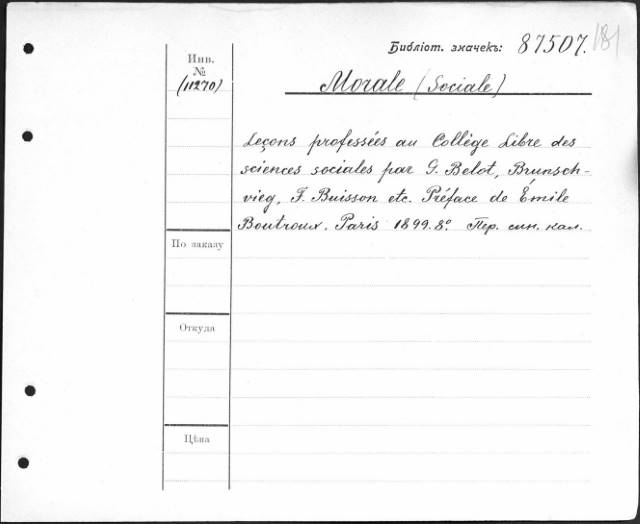 Библіот. значекъ: 87507.
181
Инв.
№
(11270)
Morale (Sociale)
Leçons professées au Collège Libre des
sciences sociales par G. Belot, Brunsch-
vieg, F. Buisson etc. Préface de Émile
Boutroux. Paris 1899. 8º. Пер. син. кал.
По заказу
Откуда
Цѣна